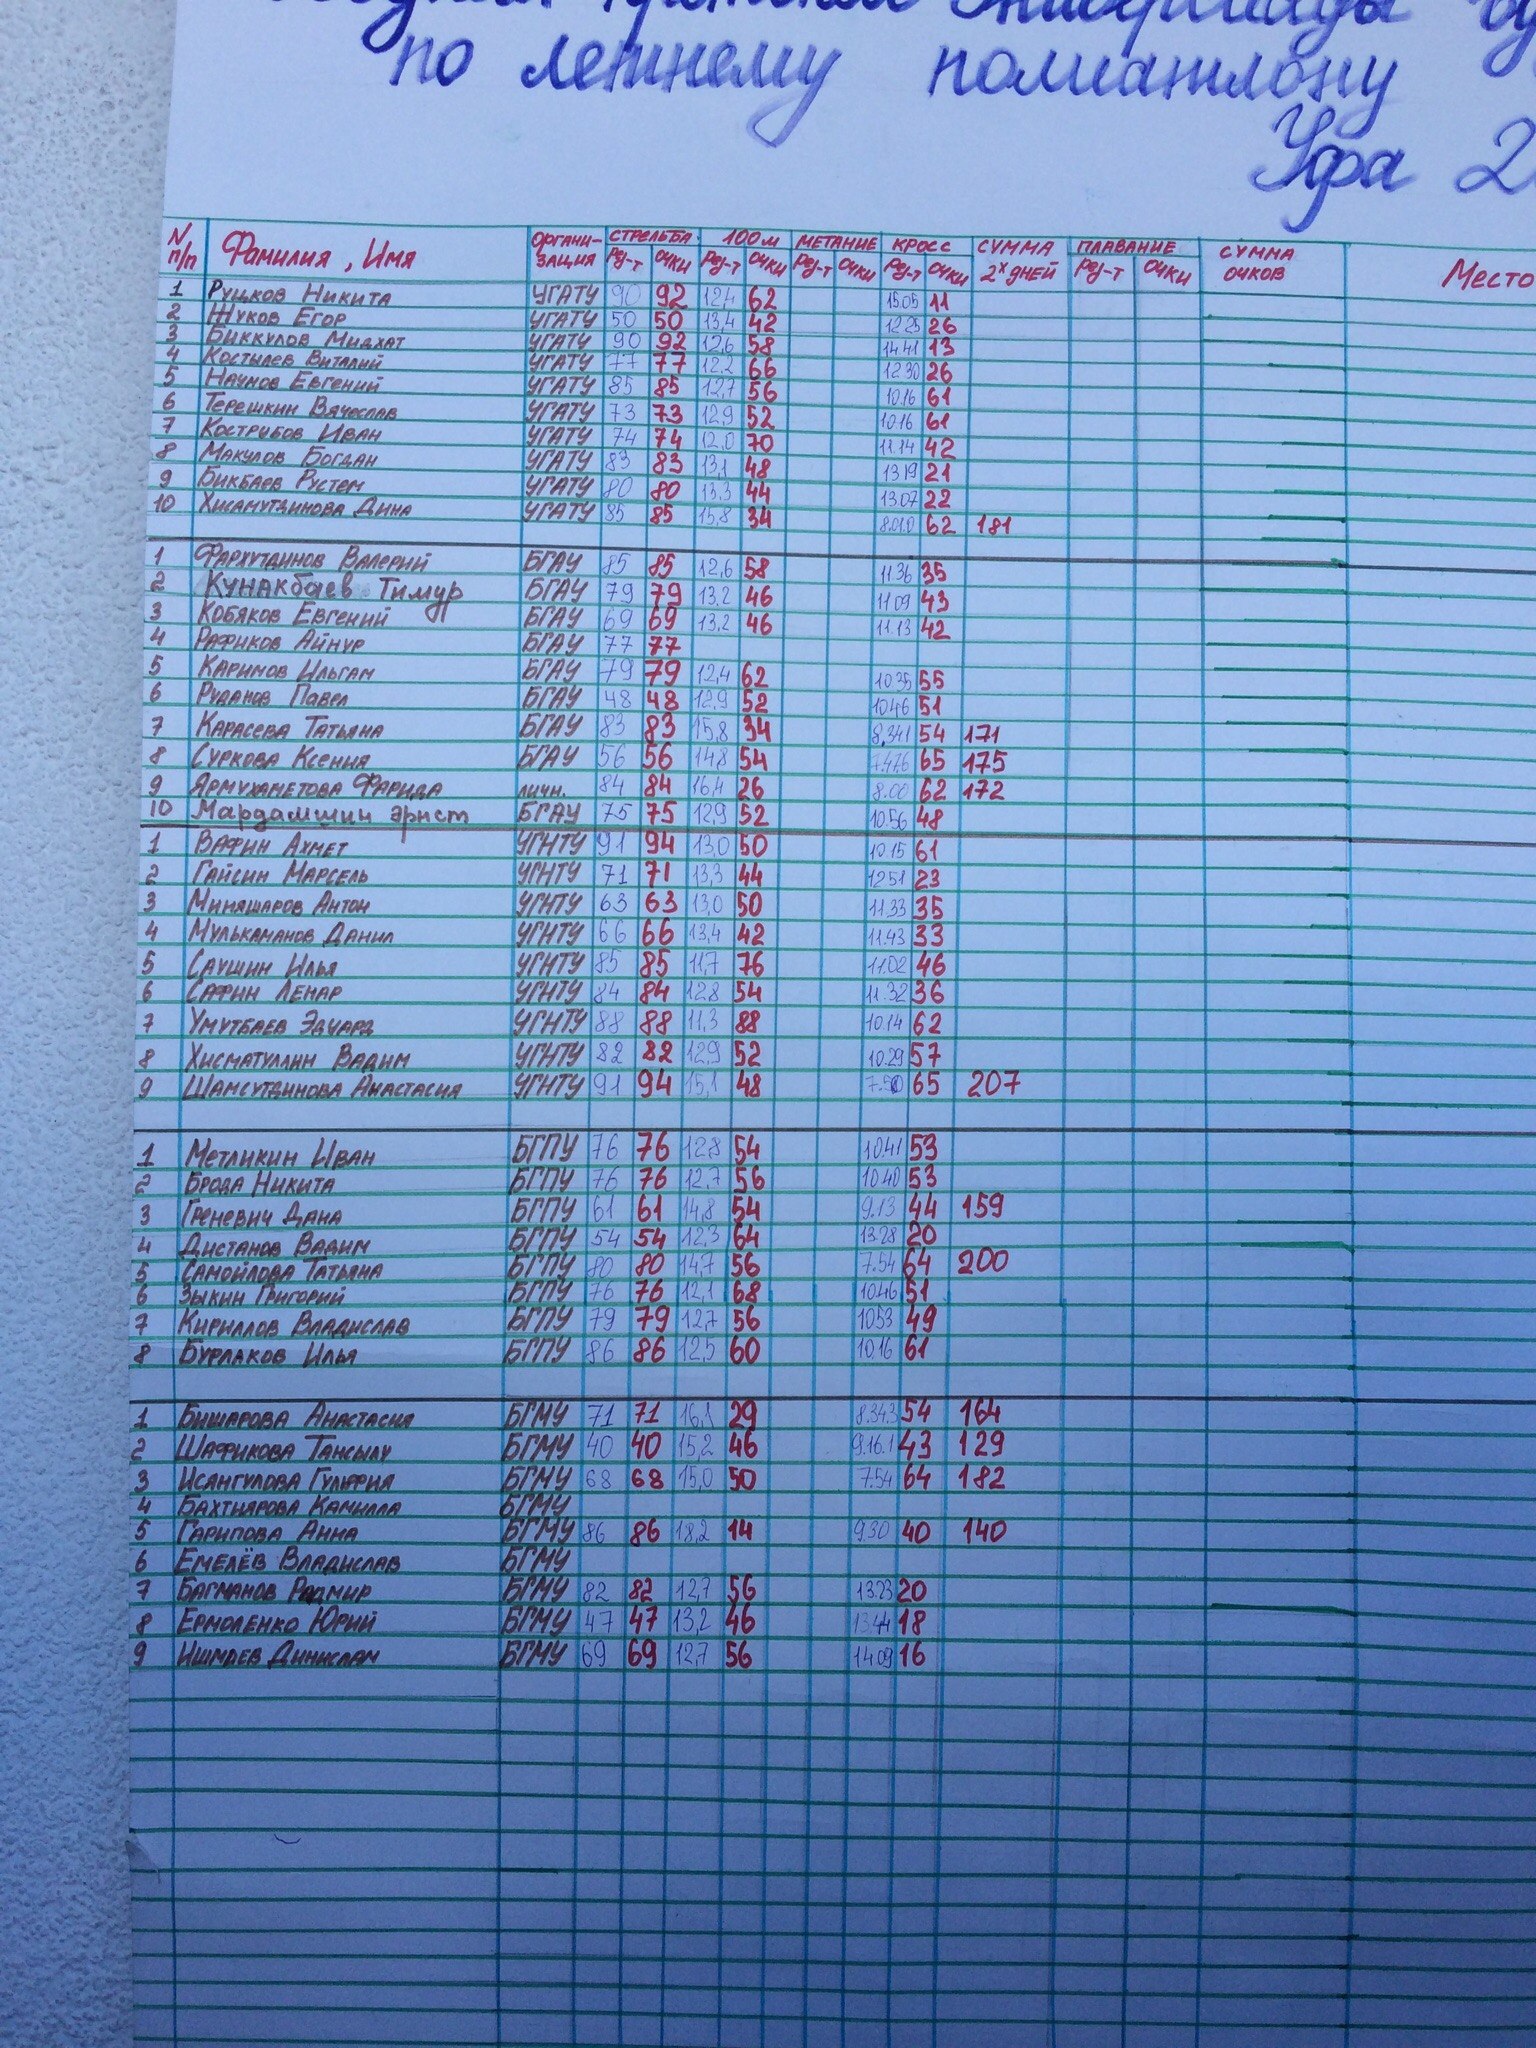 по летнему полиатлону
Уфа 2
N п/п Фамилия, Имя Органи-зация Стрельба 100м Метание Кросс Сумма 2х дней Плавание Сумма очков Место
Рез-т очки Рез-т очки Рез-т очки Рез-т очки Рез-т очки
1 Руцков Никита УГАТУ 90 92 12,4 62 15.05 11
2 Жуков Егор УГАТУ 50 50 13,4 42 12 23 26
3 Биккулов Мидхат УГАТУ 90 92 12,6 58 14.41 13
4 Костылев Виталий УГАТУ 77 77 12,2 66 12 30 26
5 Наумов Евгений УГАТУ 85 85 12,7 56 10.16 61
6 Терешкин Вячеслав УГАТУ 73 73 12,9 52 10.16 61
7 Кострубов Иван УГАТУ 74 74 12,0 70 11.14 42
8 Макулов Богдан УГАТУ 83 83 13,1 48 13 19 21
9 Бикбаев Рустем УГАТУ 80 80 13,3 44 13 07 22
10 Хисамутдинова Дина УГАТУ 85 85 15,8 34 62 181
1 Фархутдинов Валерий БГАУ 85 85 12,6 58 11.36 35
2 Кунакбаев Тимур БГАУ 79 79 13,2 46 11 09 43
3 Кобяков Евгений БГАУ 69 69 13,2 46 11.13 42
4 Рафиков Айнур БГАУ 77 77
5 Каримов Ильгам БГАУ 79 79 12,4 62 10 35 55
6 Руданов Павел БГАУ 48 48 12,9 52 10.46 51
7 Карасева Татьяна БГАУ 83 83 15,8 34 8.34.1 54 171
8 Суркова Ксения БГАУ 56 56 14,8 54 7.47.6 65 175
9 Ярмухаметова Фарида личн. 84 84 16,4 26 8.00 62 172
10 Мардамшин Эрнст БГАУ 75 75 12,9 52 10.56 48
1 Вафин Ахмет УГНТУ 91 94 13,0 50 10.15 61
2 Гайсин Марсель УГНТУ 71 71 13,3 44 12 51 23
3 Миняшаров Антон УГНТУ 63 63 13,0 50 11.33 35
4 Мулькаманов Данил УГНТУ 66 66 13,4 42 11.43 33
5 Саушин Илья УГНТУ 85 85 11,7 76 11.02 46
6 Сафин Ленар УГНТУ 84 84 12,8 54 11.32 36
7 Умутбаев Эдуард УГНТУ 88 88 11,3 88 10.14 62
8 Хисматуллин Вадим УГНТУ 82 82 12,9 52 10.29 57
9 Шамсутдинова Анастасия УГНТУ 91 94 15,1 48 7.50 65 207
1 Метликин Иван БГПУ 76 76 12,8 54 10.41 53
2 Брода Никита БГПУ 76 76 12,7 56 10 40 53
3 Греневич Дана БГПУ 61 61 14,8 54 9.13 44 159
4 Дистанов Вадим БГПУ 54 54 12,3 64 13.28 20
5 Самойлова Татьяна БГПУ 80 80 14,7 56 7.54 64 200
6 Зыкин Григорий БГПУ 76 76 12,1 68 10.46 51
7 Кириллов Владислав БГПУ 79 79 12,7 56 10 53 49
8 Бурлаков Илья БГПУ 86 86 12,5 60 10.16 61
1 Бишарова Анастасия БГМУ 71 71 16,1 29 8.34.3 54 164
2 Шафикова Тансылу БГМУ 40 40 15,2 46 9.16.1 43 129
3 Исангулова Гульфия БГМУ 68 68 15,0 50 7.54 64 182
4 Бахтиарова Камилла БГМУ
5 Гарипова Анна БГМУ 86 86 18,2 14 9.30 40 140
6 Емелёв Владислав БГМУ
7 Багманов Радмир БГМУ 82 82 12,7 56 13.23 20
8 Ермоленко Юрий БГМУ 47 47 13,2 46 13.44 18
9 Ишмаев Динислам БГМУ 69 69 12,7 56 14 09 16